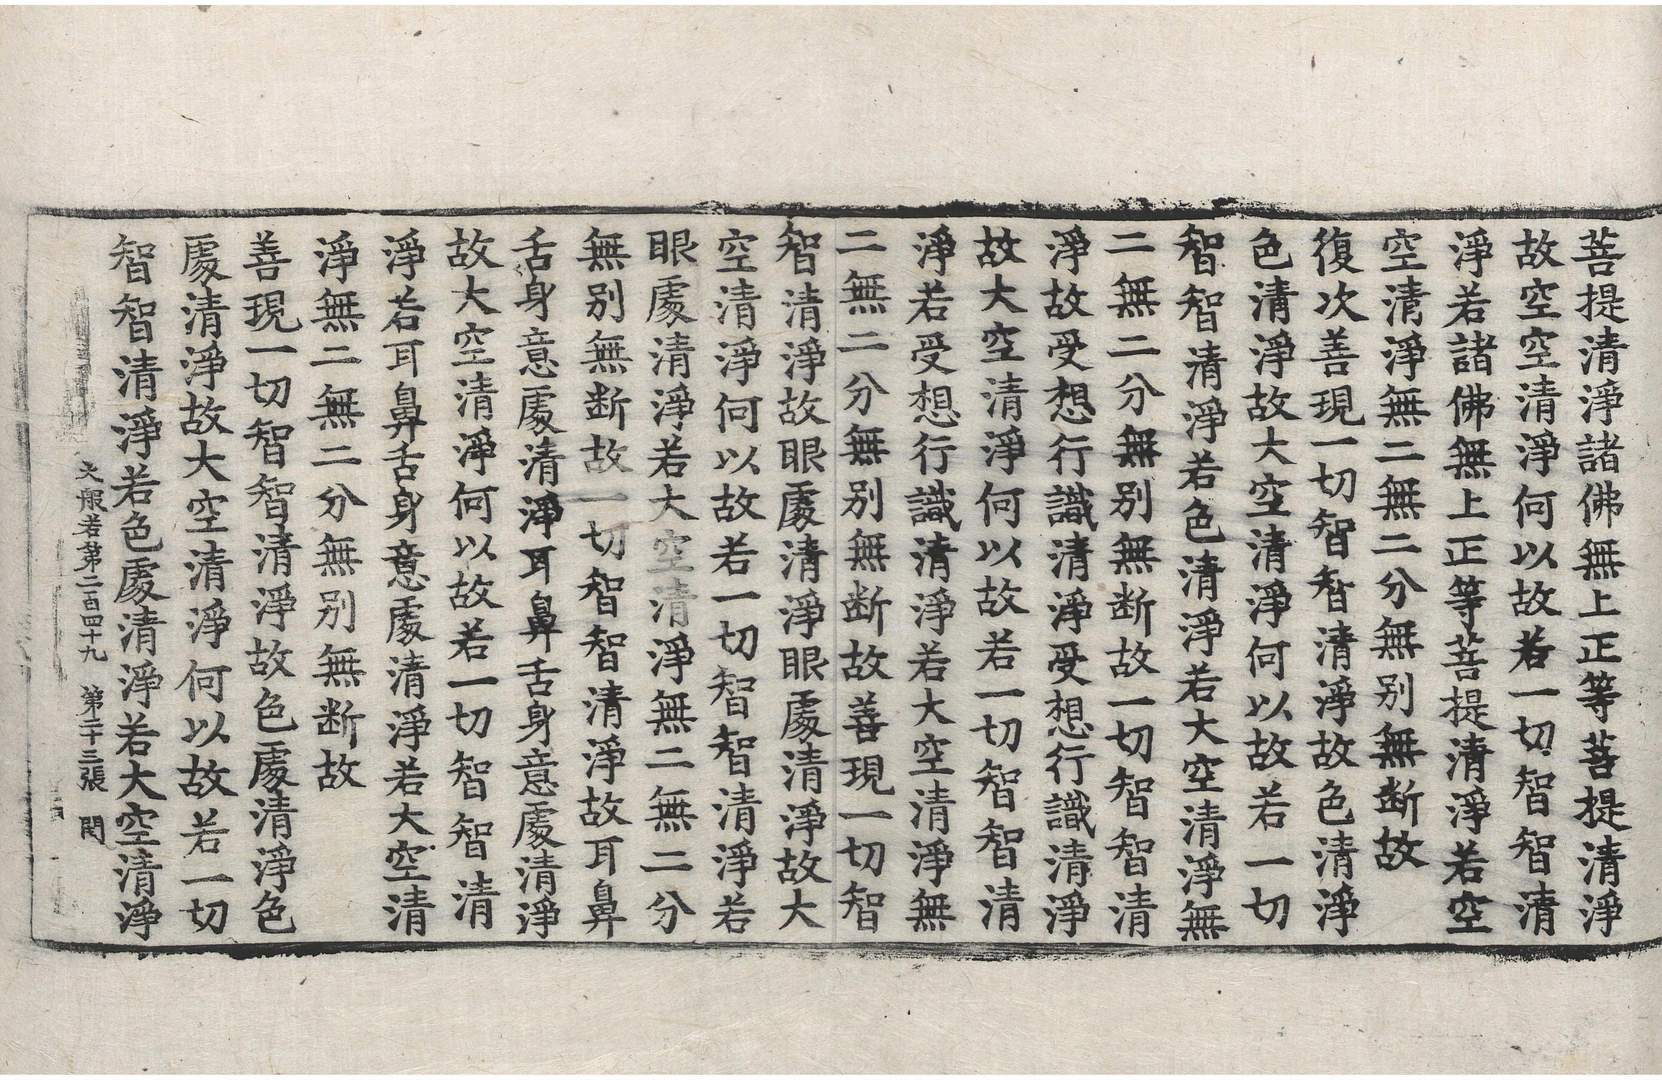 菩提清淨諸佛無上正等菩提清淨
故空空清淨何以故若一切智智清
淨若諸佛無上正等菩提清淨若空
空清淨無二無二分無別無断故
復次善現一切智智清淨故色清淨
色清淨故大空清淨何以故若一切
智智清淨若色清淨若大空清淨無
二無二分無別無断故一切智智清
淨故受想行識清淨受想行識清淨
故大空清淨何以故若一切智智清
淨若受想行識清淨若大空清淨無
二無二分無別無断故善現一切智
智清淨故眼處清淨眼處清淨故大
空清淨何以故若一切智智清淨若
眼處清淨若大空清淨無二無二分
無別無断故一切智智清淨故耳鼻
舌身意處清淨耳鼻舌身意處清淨
故大空清淨何以故若一切智智清
淨若耳鼻舌身意處清淨若大空清
淨無二無二分無別無断故
善現一切智智清淨故色處清淨色
處清淨故大空清淨何以故若一切
智智清淨若色處清淨若大空清淨
大般若第二百四十九 第二十三張 閔